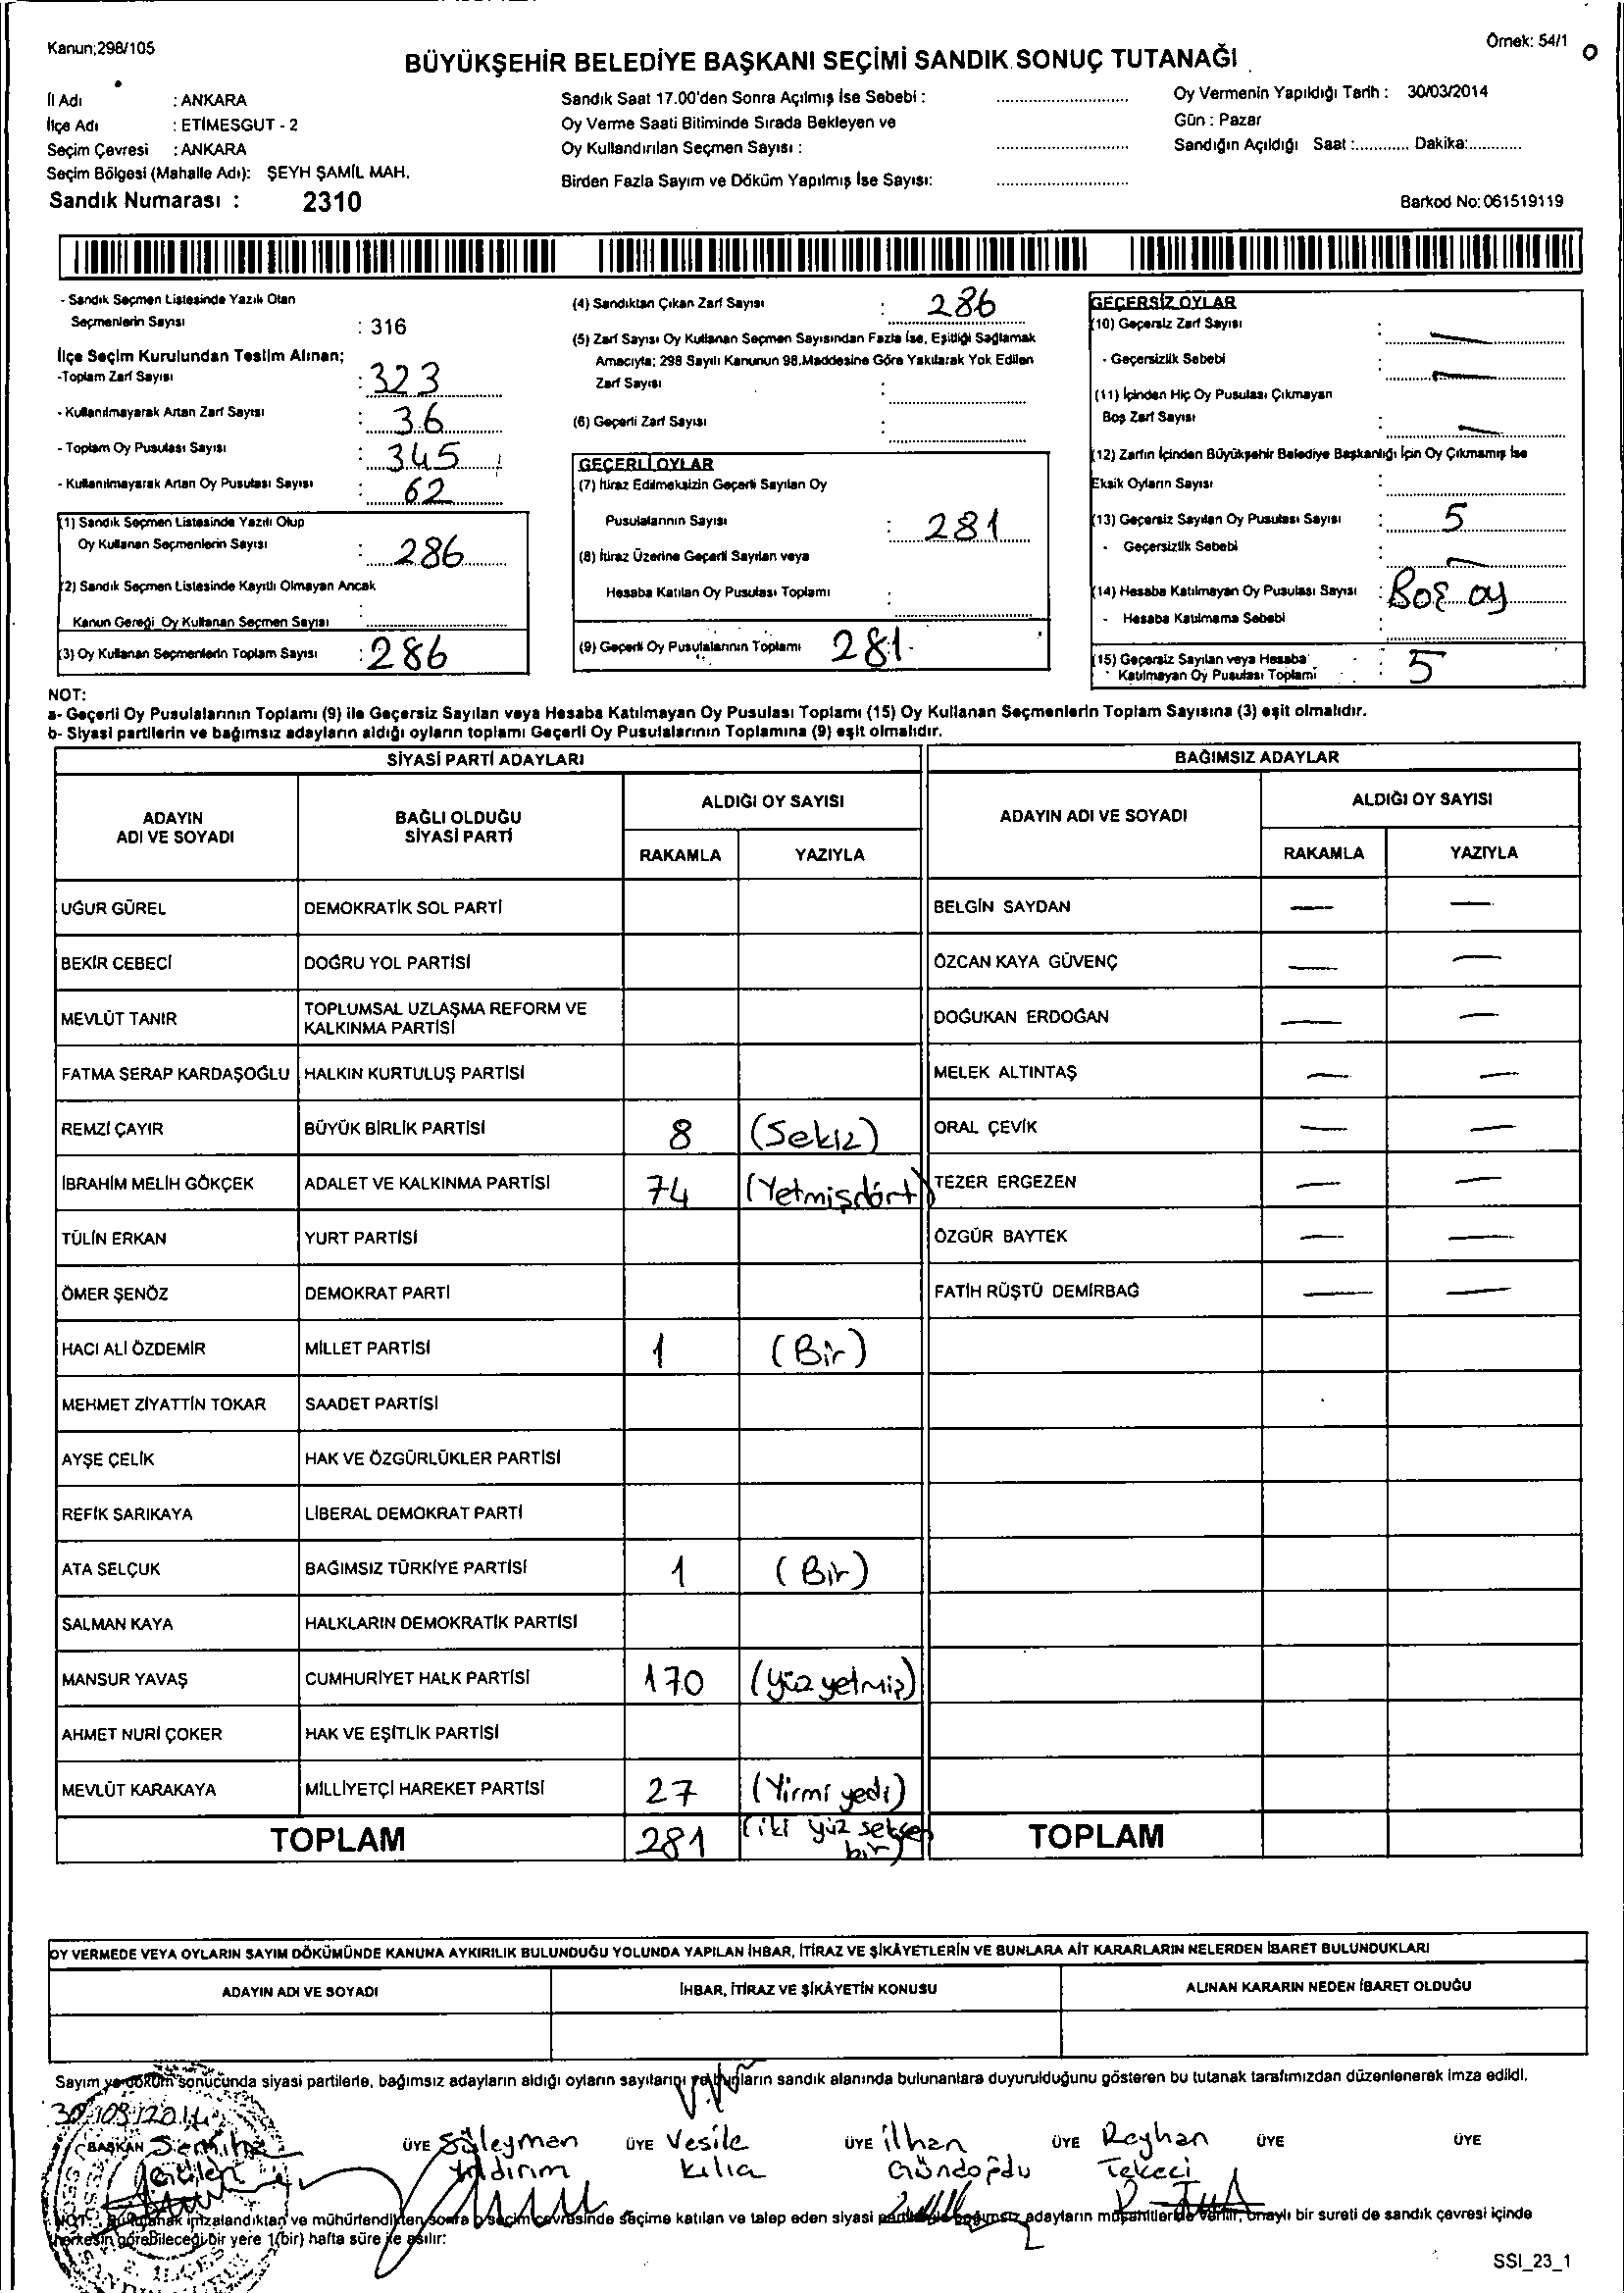 Kanun;298/105
Örnek: 54/1
BÜYÜKŞEHİR BELEDİYE BAŞKANI SEÇİMİ SANDIK SONUÇ TUTANAĞI
İl Adı : ANKARA
İlçe Adı : ETİMESGUT - 2
Seçim Çevresi : ANKARA
Seçim Bölgesi (Mahalle Adı): ŞEYH ŞAMİL MAH.
Sandık Numarası : 2310
Sandık Saat 17.00'den Sonra Açılmış İse Sebebi :
Oy Verme Saati Bitiminde Sırada Bekleyen ve
Oy Kullandırılan Seçmen Sayısı :
Birden Fazla Sayım ve Döküm Yapılmış İse Sayısı:
Oy Vermenin Yapıldığı Tarih : 30/03/2014
Gün : Pazar
Sandığın Açıldığı Saat :............ Dakika:............
Barkod No: 061519119
- Sandık Seçmen Listesinde Yazılı Olan
Seçmenlerin Sayısı : 316
İlçe Seçim Kurulundan Teslim Alınan;
-Toplam Zarf Sayısı : 323
- Kullanılmayarak Artan Zarf Sayısı : 36
- Toplam Oy Pusulası Sayısı : 345
- Kullanılmayarak Artan Oy Pusulası Sayısı : 62
(1) Sandık Seçmen Listesinde Yazılı Olup
Oy Kullanan Seçmenlerin Sayısı : 286
(2) Sandık Seçmen Listesinde Kayıtlı Olmayan Ancak
Kanun Gereği Oy Kullanan Seçmen Sayısı :
(3) Oy Kullanan Seçmenlerin Toplam Sayısı : 286
(4) Sandıktan Çıkan Zarf Sayısı : 286
(5) Zarf Sayısı Oy Kullanan Seçmen Sayısından Fazla İse, Eşitliği Sağlamak
Amacıyla; 298 Sayılı Kanunun 98.Maddesine Göre Yakılarak Yok Edilen
Zarf Sayısı :
(6) Geçerli Zarf Sayısı :
GEÇERLİ OYLAR
(7) İtiraz Edilmeksizin Geçerli Sayılan Oy
Pusulalarının Sayısı : 281
(8) İtiraz Üzerine Geçerli Sayılan veya
Hesaba Katılan Oy Pusulası Toplamı :
(9) Geçerli Oy Pusulalarının Toplamı 281
GEÇERSİZ OYLAR
(10) Geçersiz Zarf Sayısı : —
- Geçersizlik Sebebi : —
(11) İçinden Hiç Oy Pusulası Çıkmayan
Boş Zarf Sayısı : —
(12) Zarfın İçinden Büyükşehir Belediye Başkanlığı İçin Oy Çıkmamış İse
Eksik Oyların Sayısı :
(13) Geçersiz Sayılan Oy Pusulası Sayısı : 5
- Geçersizlik Sebebi : —
(14) Hesaba Katılmayan Oy Pusulası Sayısı : Boş oy
- Hesaba Katılmama Sebebi :
(15) Geçersiz Sayılan veya Hesaba
Katılmayan Oy Pusulası Toplamı : 5
NOT:
a- Geçerli Oy Pusulalarının Toplamı (9) ile Geçersiz Sayılan veya Hesaba Katılmayan Oy Pusulası Toplamı (15) Oy Kullanan Seçmenlerin Toplam Sayısına (3) eşit olmalıdır.
b- Siyasi partilerin ve bağımsız adayların aldığı oyların toplamı Geçerli Oy Pusulalarının Toplamına (9) eşit olmalıdır.
SİYASİ PARTİ ADAYLARI
BAĞIMSIZ ADAYLAR
ADAYIN
ADI VE SOYADI
BAĞLI OLDUĞU
SİYASİ PARTİ
ALDIĞI OY SAYISI
RAKAMLA YAZIYLA
ADAYIN ADI VE SOYADI
ALDIĞI OY SAYISI
RAKAMLA YAZIYLA
UĞUR GÜREL DEMOKRATİK SOL PARTİ BELGİN SAYDAN — —
BEKİR CEBECİ DOĞRU YOL PARTİSİ ÖZCAN KAYA GÜVENÇ — —
MEVLÜT TANIR TOPLUMSAL UZLAŞMA REFORM VE
KALKINMA PARTİSİ DOĞUKAN ERDOĞAN — —
FATMA SERAP KARDAŞOĞLU HALKIN KURTULUŞ PARTİSİ MELEK ALTINTAŞ — —
REMZİ ÇAYIR BÜYÜK BİRLİK PARTİSİ 8 (Sekiz) ORAL ÇEVİK — —
İBRAHİM MELİH GÖKÇEK ADALET VE KALKINMA PARTİSİ 74 (Yetmişdört) TEZER ERGEZEN — —
TÜLİN ERKAN YURT PARTİSİ ÖZGÜR BAYTEK — —
ÖMER ŞENÖZ DEMOKRAT PARTİ FATİH RÜŞTÜ DEMİRBAĞ — —
HACI ALİ ÖZDEMİR MİLLET PARTİSİ 1 (Bir)
MEHMET ZİYATTİN TOKAR SAADET PARTİSİ
AYŞE ÇELİK HAK VE ÖZGÜRLÜKLER PARTİSİ
REFİK SARIKAYA LİBERAL DEMOKRAT PARTİ
ATA SELÇUK BAĞIMSIZ TÜRKİYE PARTİSİ 1 (Bir)
SALMAN KAYA HALKLARIN DEMOKRATİK PARTİSİ
MANSUR YAVAŞ CUMHURİYET HALK PARTİSİ 170 (Yüz yetmiş)
AHMET NURİ ÇOKER HAK VE EŞİTLİK PARTİSİ
MEVLÜT KARAKAYA MİLLİYETÇİ HAREKET PARTİSİ 27 (Yirmi yedi)
TOPLAM 281 (iki yüz seksen
bir) TOPLAM
OY VERMEDE VEYA OYLARIN SAYIM DÖKÜMÜNDE KANUNA AYKIRILIK BULUNDUĞU YOLUNDA YAPILAN İHBAR, İTİRAZ VE ŞİKÂYETLERİN VE BUNLARA AİT KARARLARIN NELERDEN İBARET BULUNDUKLARI
ADAYIN ADI VE SOYADI İHBAR, İTİRAZ VE ŞİKÂYETİN KONUSU ALINAN KARARIN NEDEN İBARET OLDUĞU
Sayım ve döküm sonucunda siyasi partilerle, bağımsız adayların aldığı oyların sayılarını ve bunların sandık alanında bulunanlara duyurulduğunu gösteren bu tutanak tarafımızdan düzenlenerek imza edildi.
30/03/2014
BAŞKAN Semiha ÜYE Süleyman ÜYE Vesile ÜYE ilhan ÜYE Reyhan ÜYE ÜYE
Yıldırım Kılıa Gündoğdu Tekeci
NOT: Bu tutanak imzalandıktan ve mühürlendikten sonra o seçim çevresinde seçime katılan ve talep eden siyasi parti bağımsız adayların müşahitlerine verilir, onaylı bir sureti de sandık çevresi içinde
herkesin görebileceği bir yere 1(bir) hafta süre ile asılır:
SSI_23_1